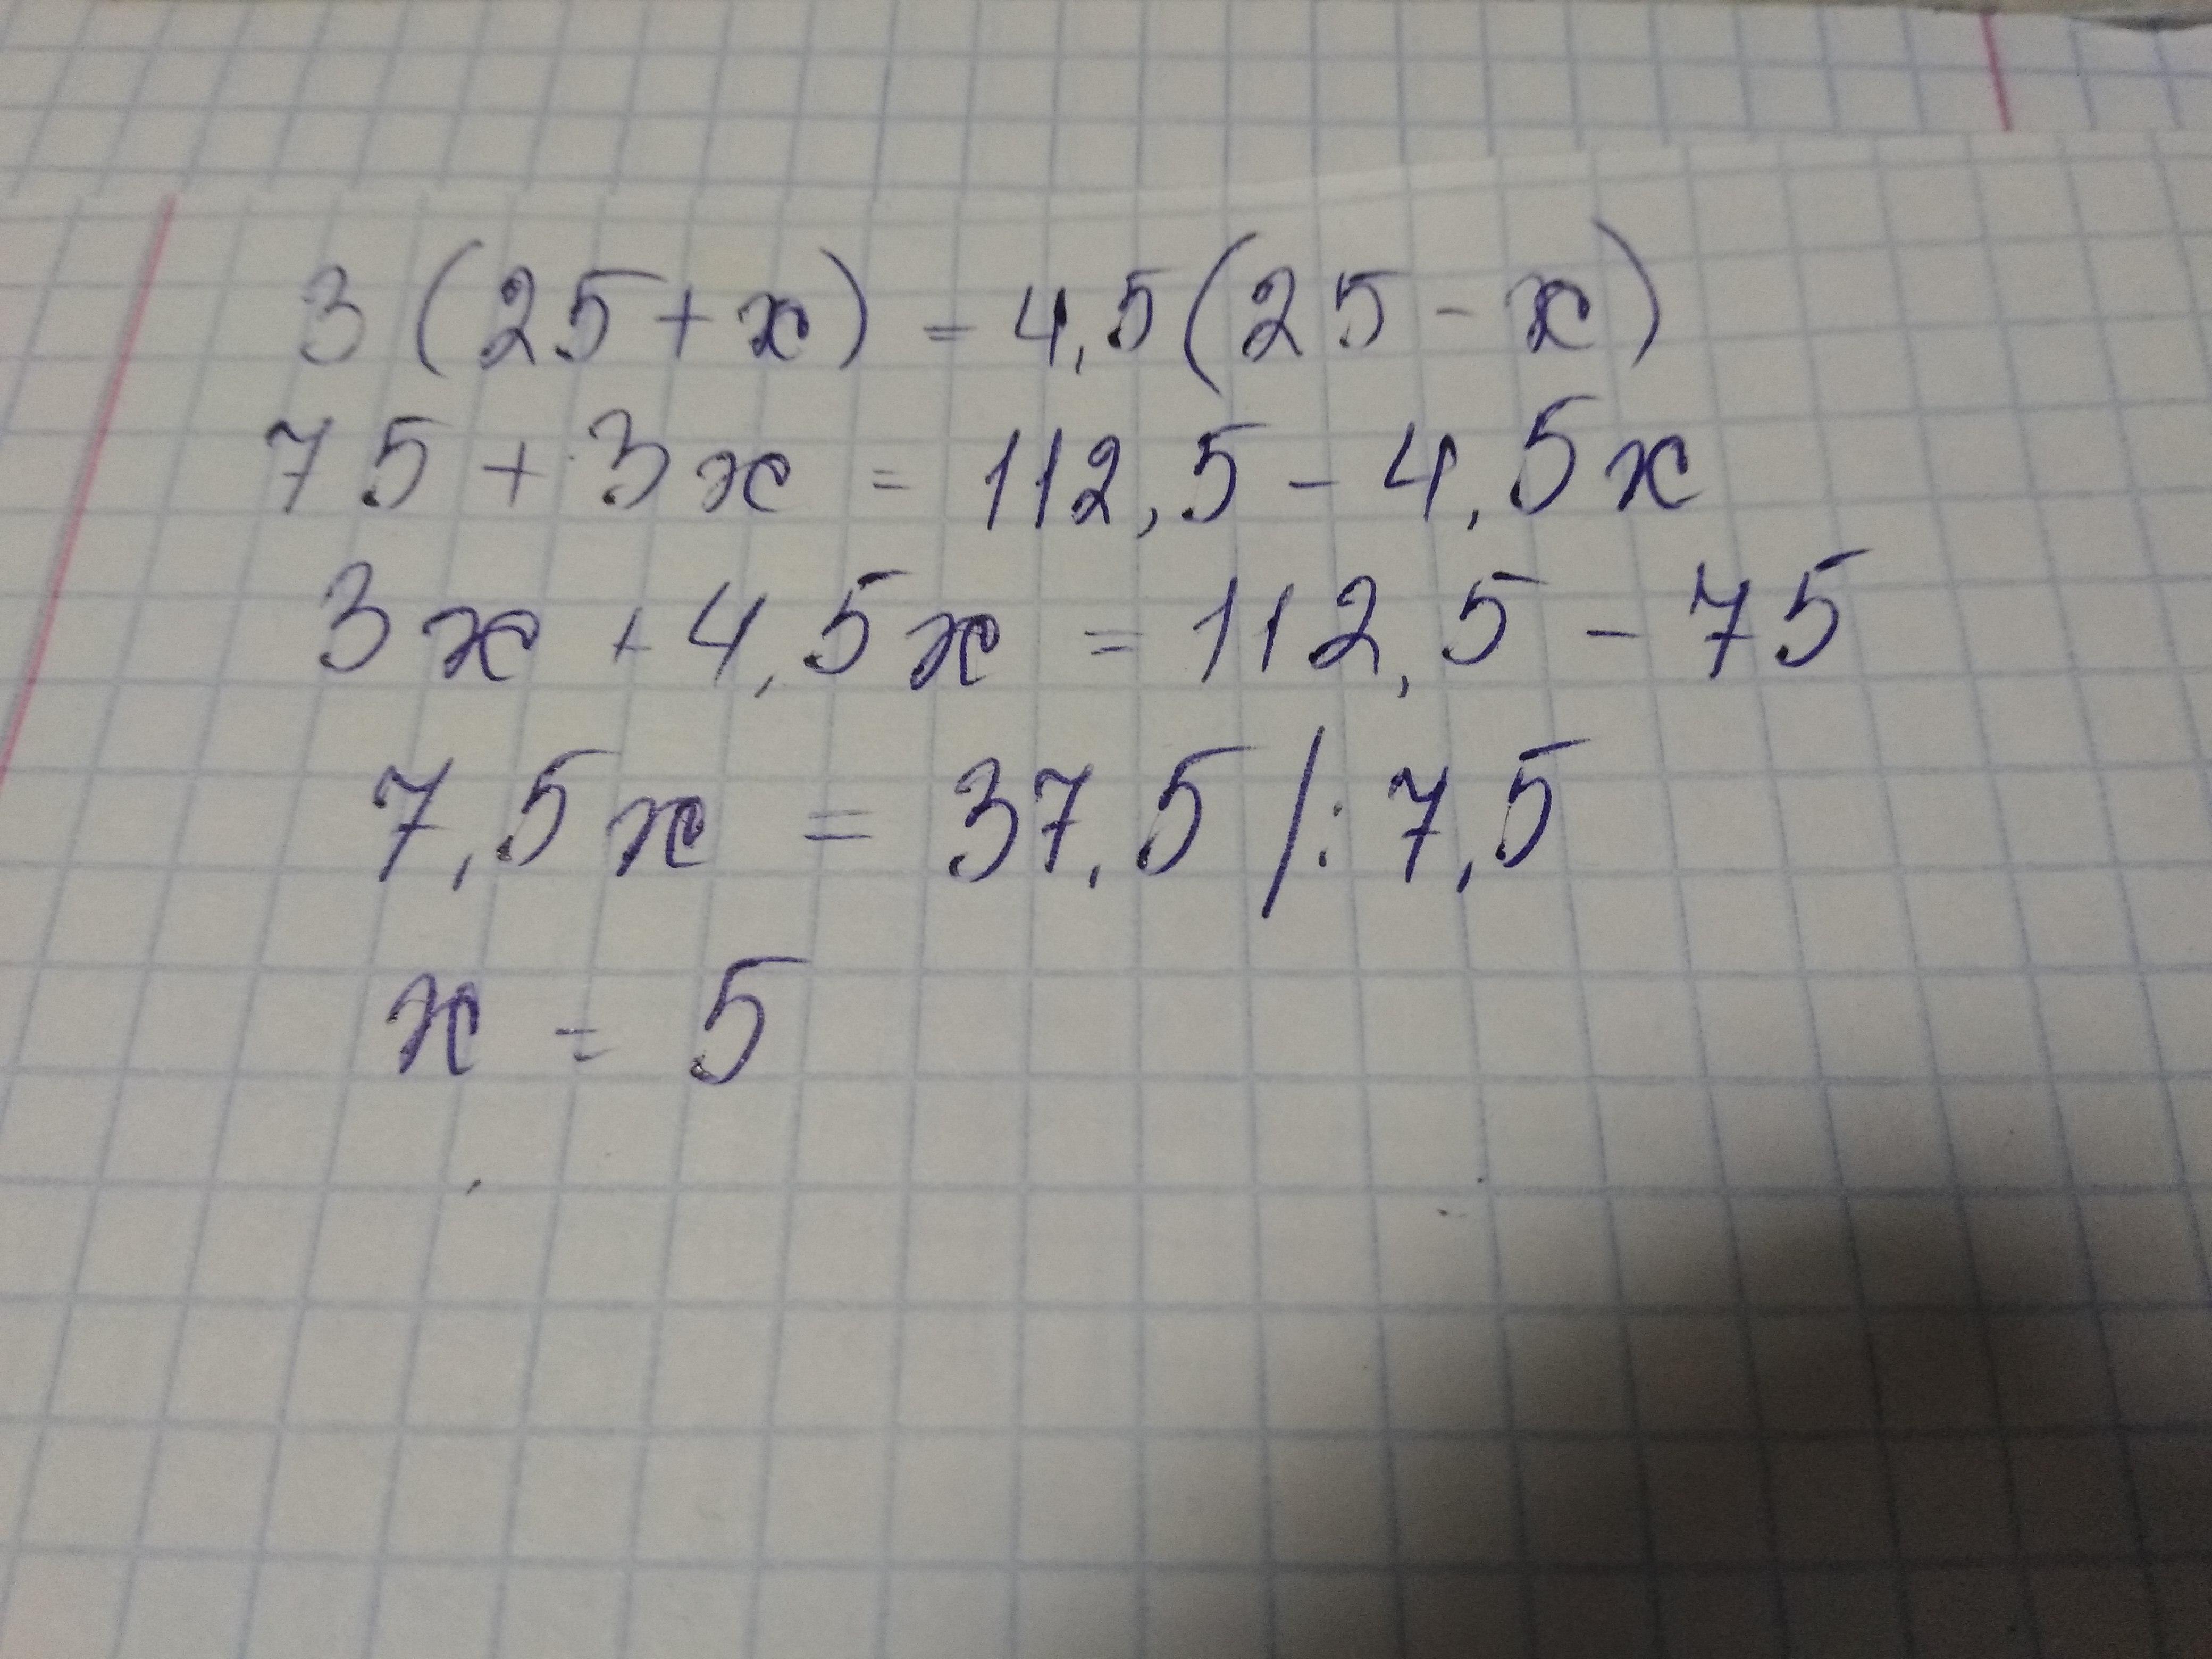 3(25+x) = 4,5(25-x)
75+3x = 112,5-4,5x
3x+4,5x = 112,5-75
7,5x = 37,5 /:7,5
x = 5